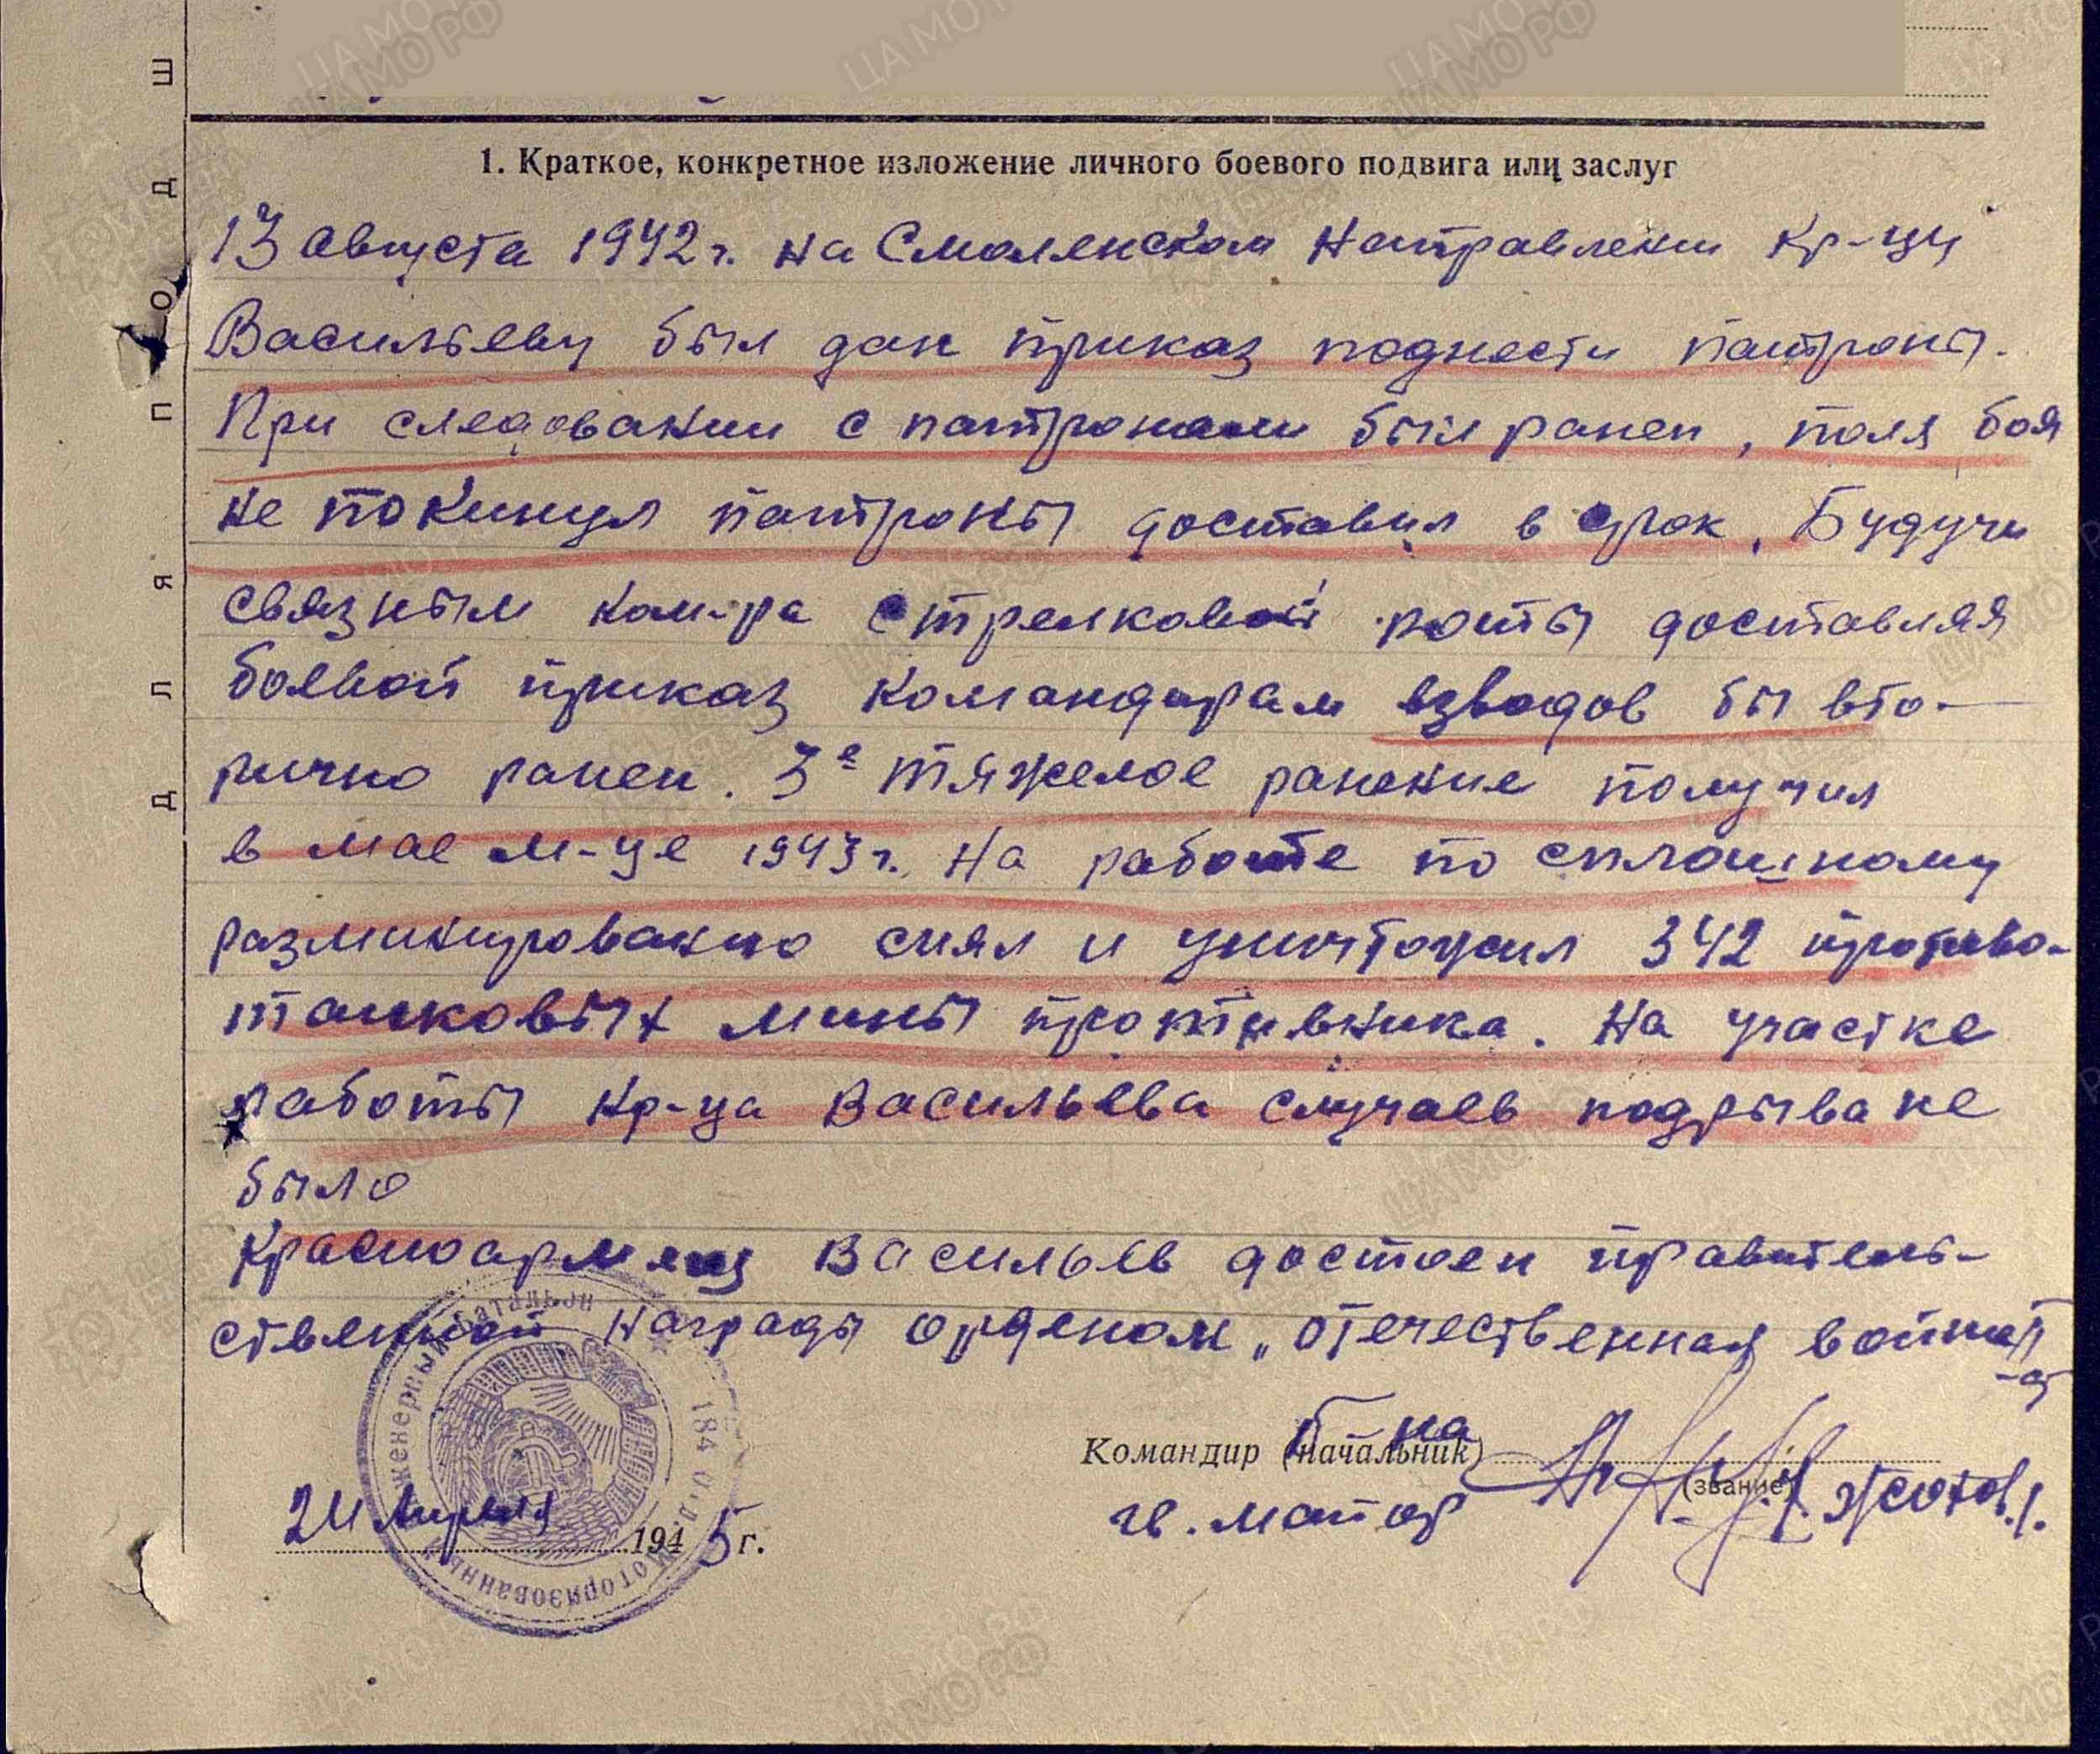 1. Краткое, конкретное изложение личного боевого подвига или заслуг
13 августа 1942 г. на Смоленском направлении кр-цу
Васильеву был дан приказ поднести патроны.
При следовании с патронами был ранен, поля боя
не покинул патроны доставил в срок. Будучи
связным ком-ра стрелковой роты доставляя
боевой приказ командирам взводов бы вто-
рично ранен. 3е тяжелое ранение получил
в мае м-це 1943 г. На работе по сплошному
разминированию снял и уничтожил 342 противо-
танковых мины противника. На участке
работы кр-ца Васильева случаев подрыва не
было
Красноармеец Васильев достоен правитель-
ственной награды орденом „Отечественная война
Командир (начальник)
б-на
(звание)
гв. майор
Изотов
24 апреля 1945 г.
инженерный батальон
184 отд. моторизованный
ДЛЯ ПОДШ
ЦАМО РФ